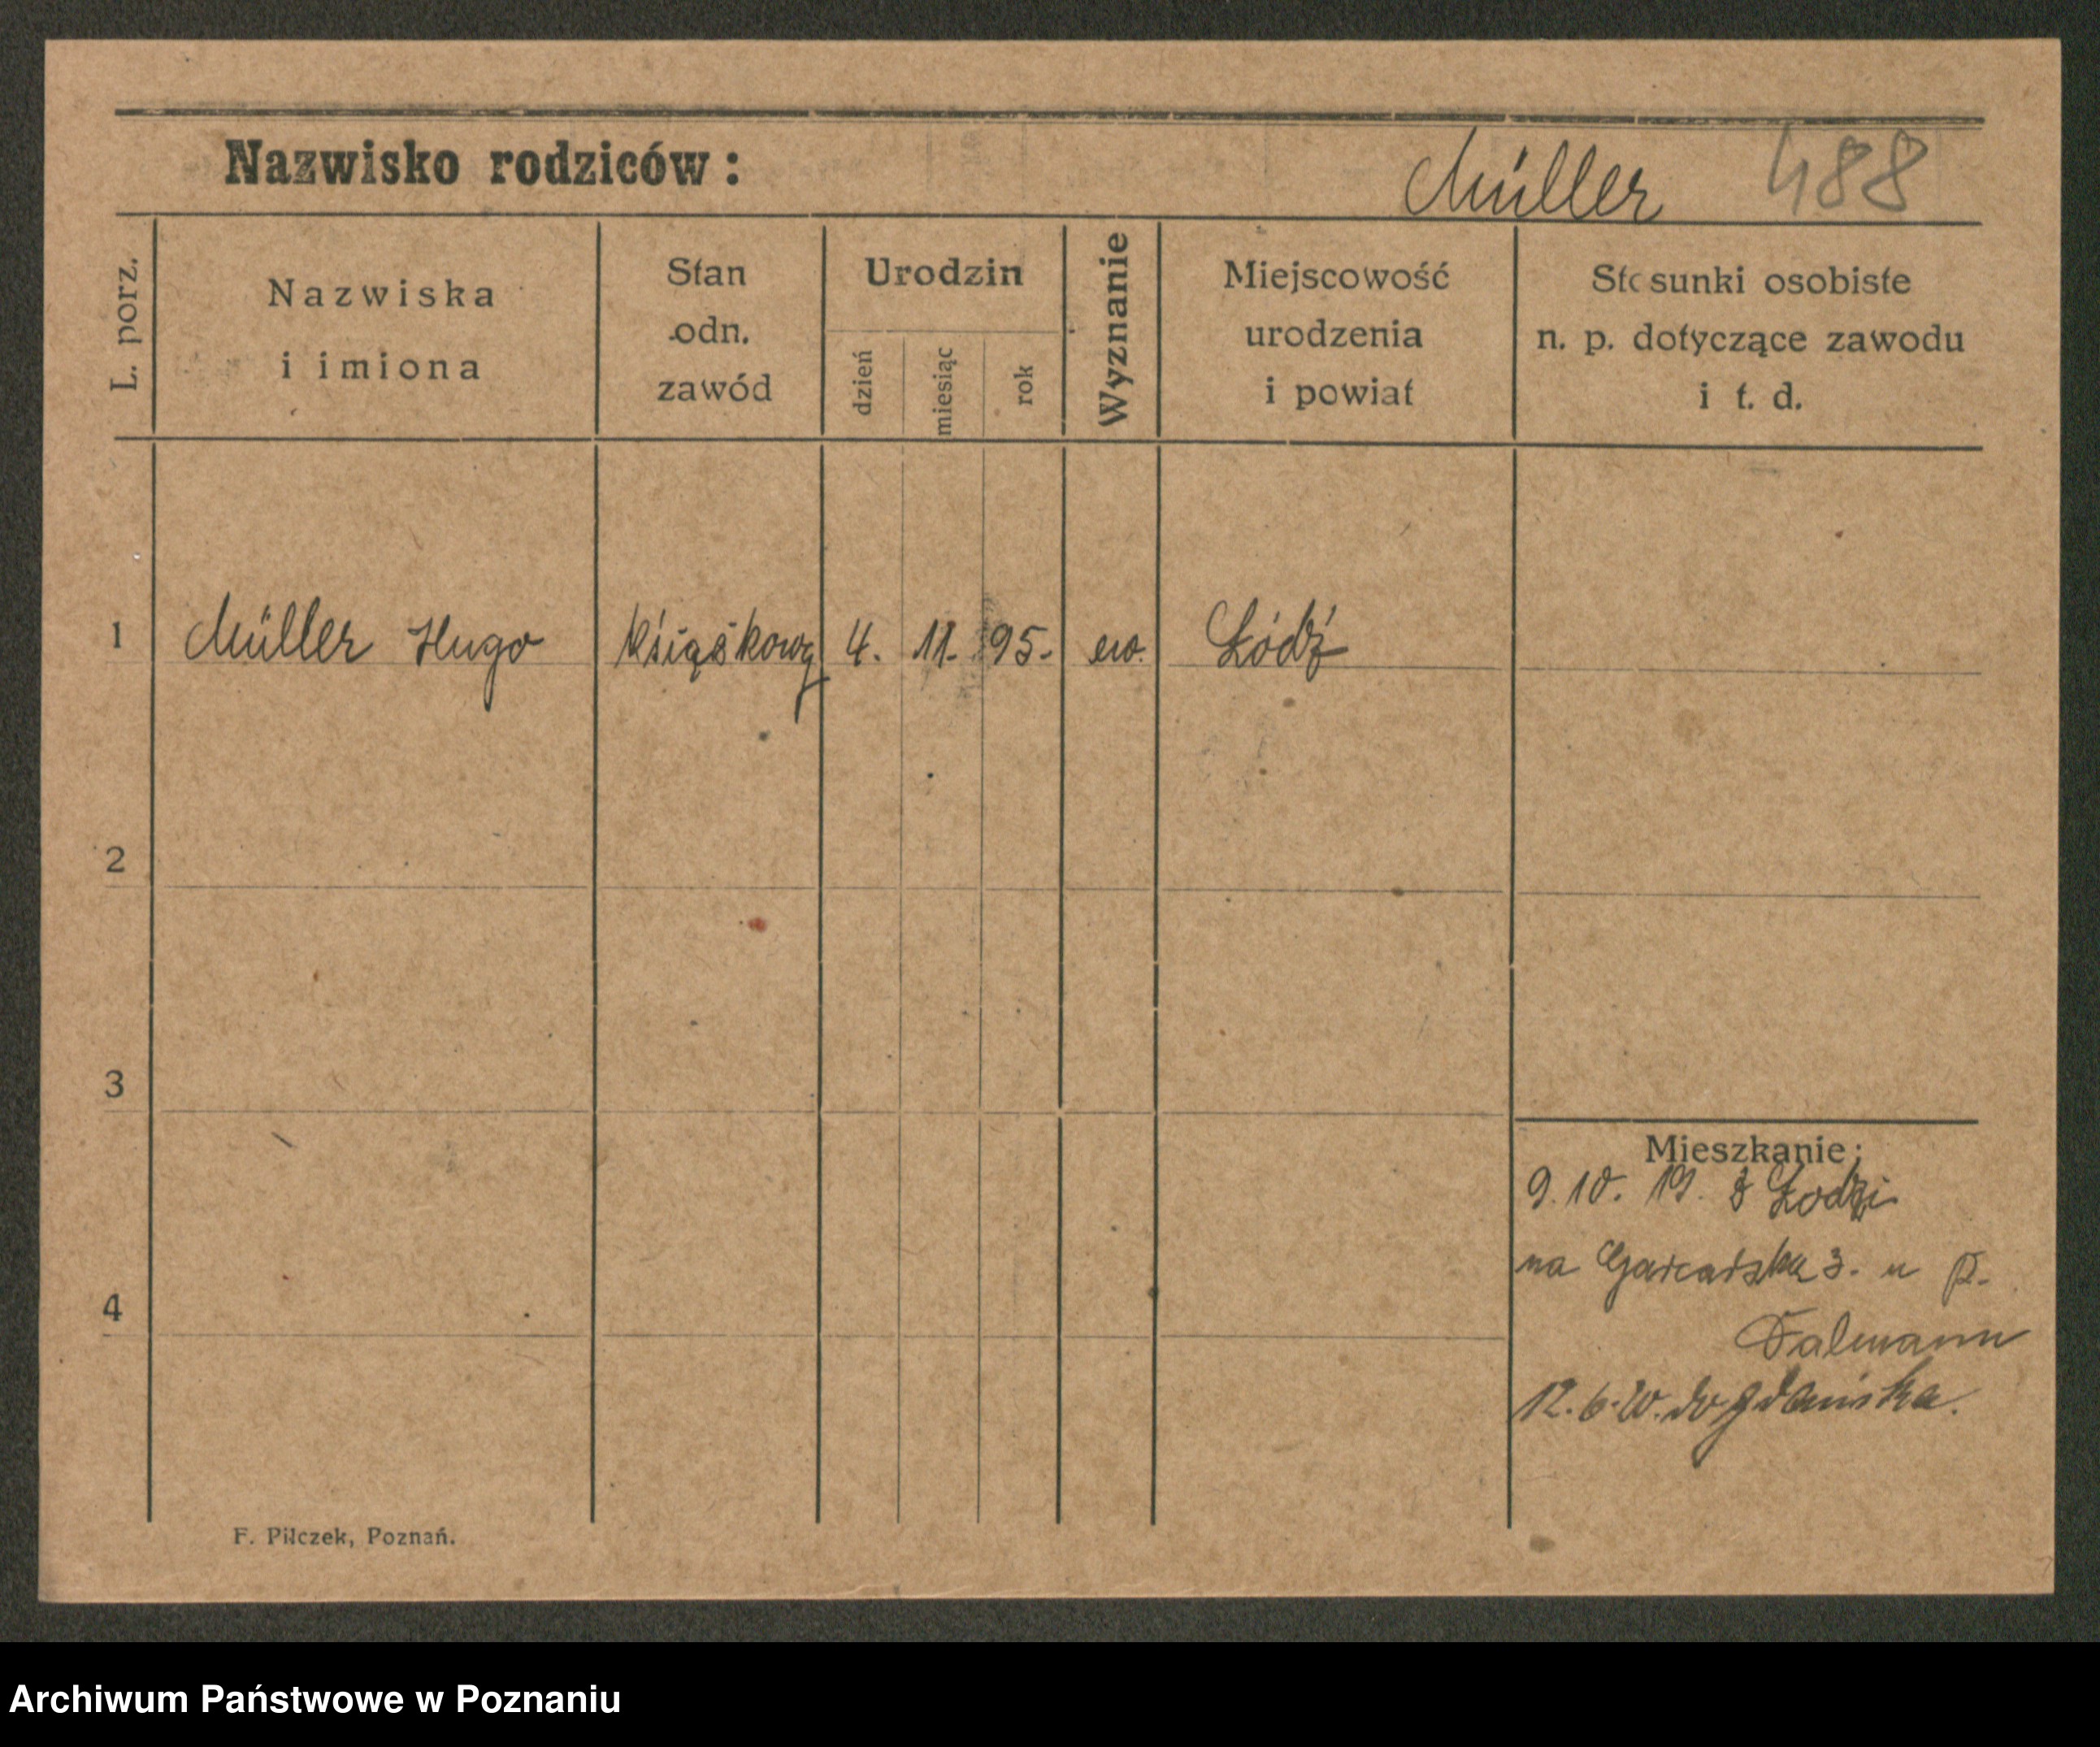 Nazwisko rodziców: Müller 488
L. porz.
Nazwiska
i imiona
Stan
odn.
zawód
Urodzin
dzień
miesiąc
rok
Wyznanie
Miejscowość
urodzenia
i powiat
Stosunki osobiste
n. p. dotyczące zawodu
i t. d.
1 Müller Hugo książkowy 4. 11. 95. ew. Łódź
2
3
4
Mieszkanie:
9.10. 19. z Łodzi
na Garcarska 3. u p.
Falmann
12.6.20. do Gdańska.
F. Pilczek, Poznań.
Archiwum Państwowe w Poznaniu